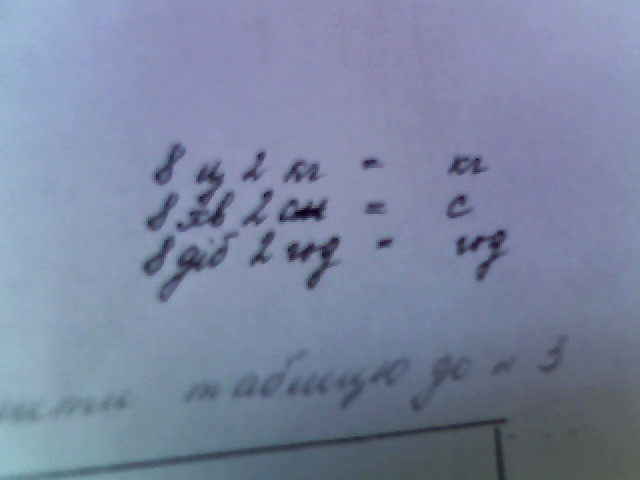 8 ц 2 кг = кг
8 хв 2 см = с
8 діб 2 год = год
таблицю до н 3